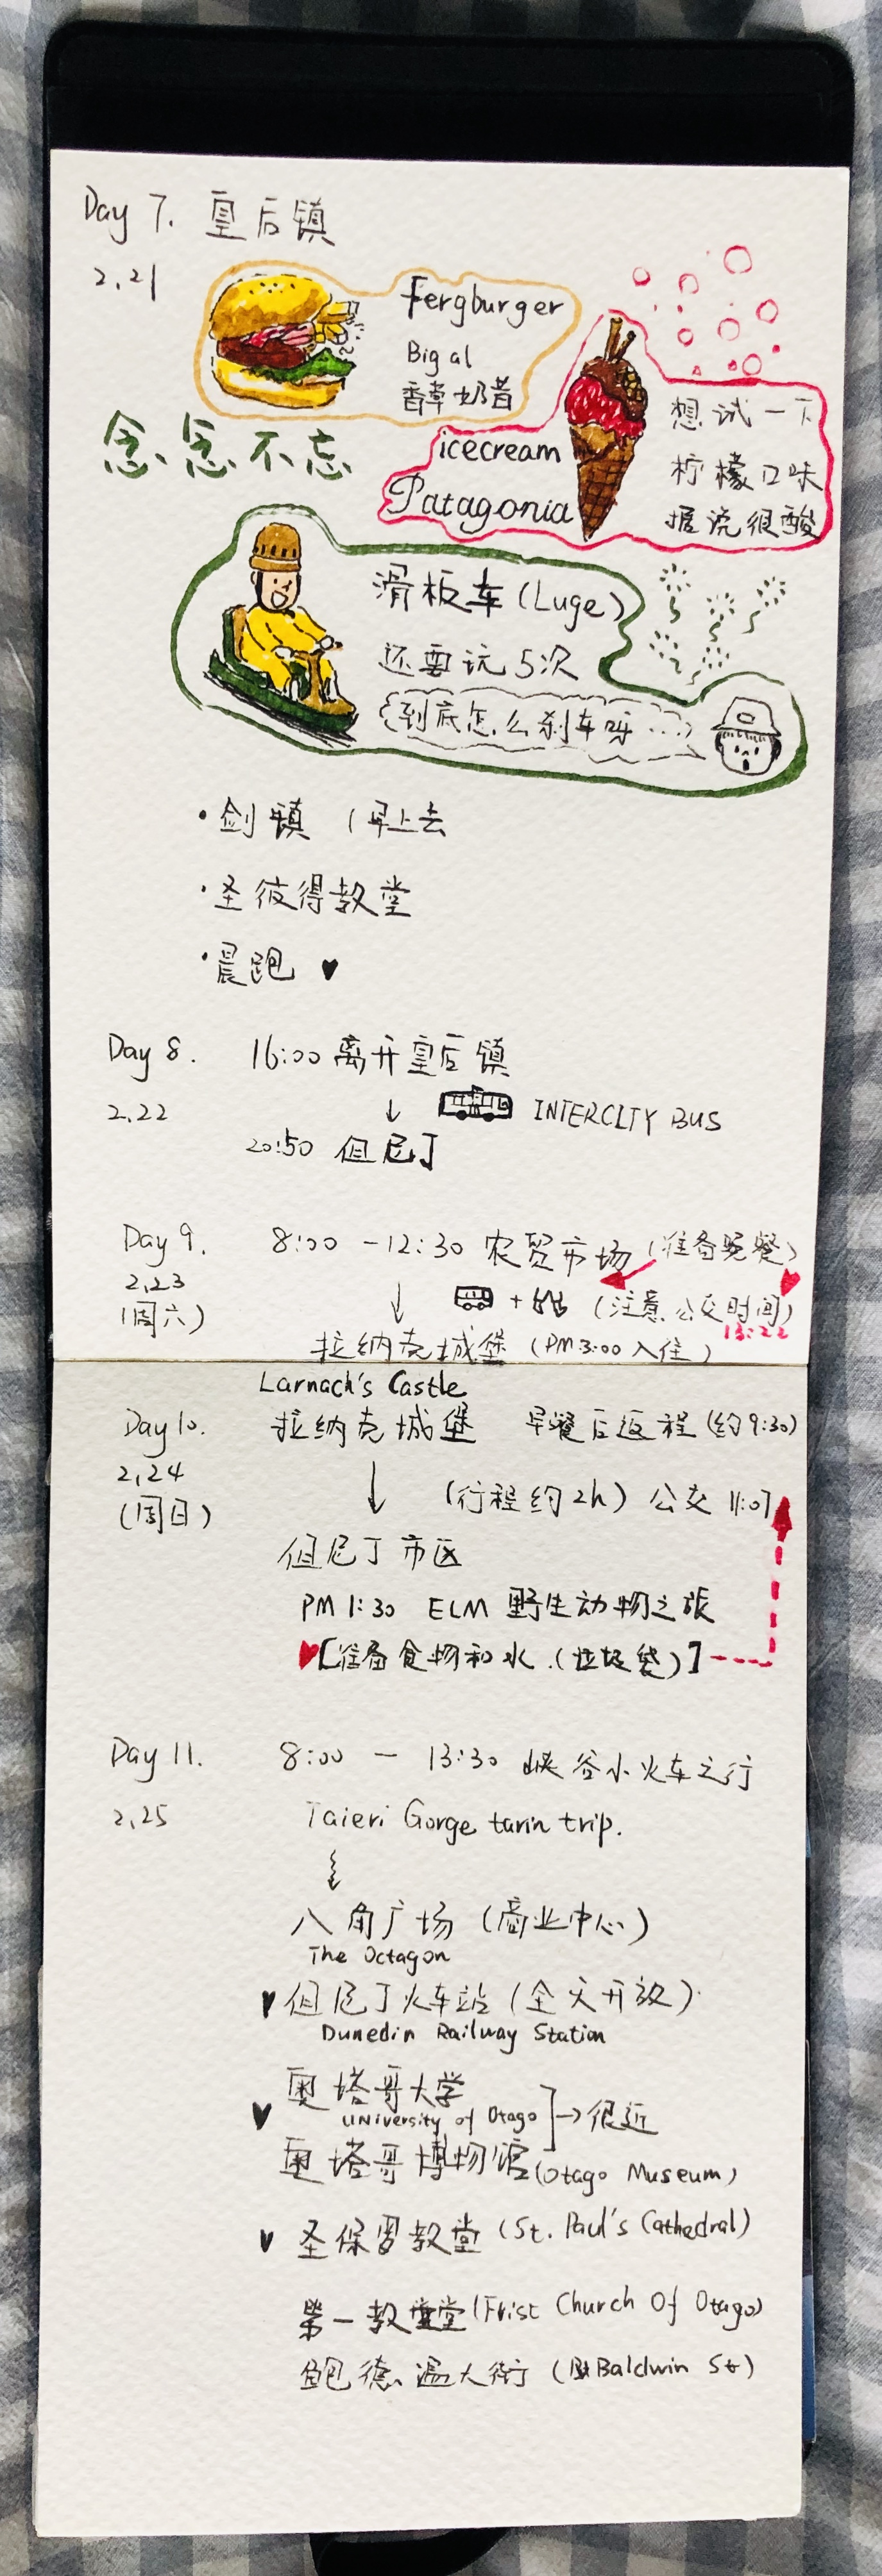 Day 7. 皇后镇
2.21
Fergburger
Big al
香草奶昔
念念不忘
icecream
Patagonia
想试一下
柠檬口味
据说很酸
滑板车(Luge)
还要玩5次
到底怎么刹车呀…
·剑镇（早上去
·圣彼得教堂
·晨跑 ♥
Day 8. 16:00 离开皇后镇
2.22 ↓ INTERCITY BUS
20:50 但尼丁
Day 9. 8:00 -12:30 农贸市场（准备晚餐）
2.23
(周六) ↓ + （注意公交时间）
13:22
拉纳克城堡 (PM 3:00 入住)
Larnach's Castle
Day 10. 拉纳克城堡 早餐后返程(约9:30)
2.24
(周日) ↓ (行程约2h) 公交 11:07
但尼丁市区
PM 1:30 ELM 野生动物之旅
♥[准备食物和水.(垃圾袋)]
Day 11. 8:00 — 13:30 峡谷小火车之行
2.25 Taieri Gorge tarin trip.
八角广场 (商业中心)
The Octagon
♥但尼丁火车站 (全天开放)
Dunedin Railway Station
奥塔哥大学
♥ University of Otago ]→很近
奥塔哥博物馆(Otago Museum)
♥ 圣保罗教堂 (St. Paul's Cathedral)
第一教堂(Frist Church Of Otago)
鲍德温大街 (Baldwin St)